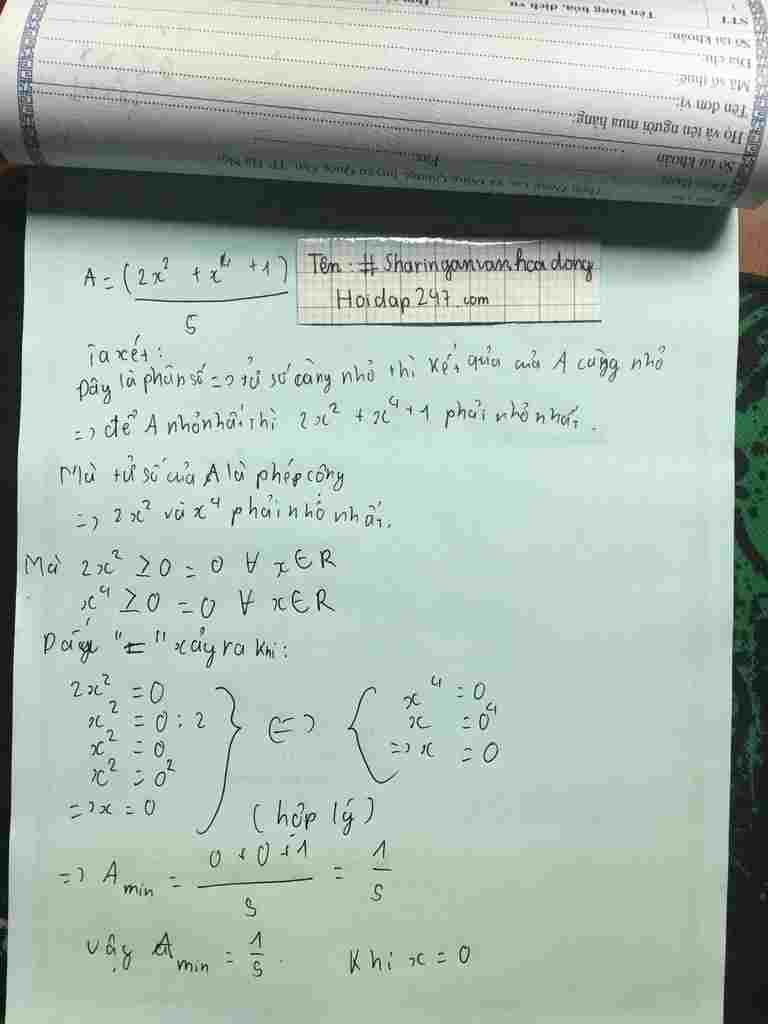 STT
Tên hàng hóa, dịch vụ
Số tài khoản:
Địa chỉ:
Mã số thuế:
Tên đơn vị:
Họ và tên người mua hàng:
Số tài khoản
A = (2x² + x⁴ + 1)
5
Tên: # Sharinganvanhoadong
Hoidap247.com
Ta xét:
Đây là phân số => tử số càng nhỏ thì kết quả của A cũng nhỏ
=> để A nhỏ nhất thì 2x² + x⁴ + 1 phải nhỏ nhất.
Mà tử số của A là phép cộng
=> 2x² và x⁴ phải nhỏ nhất.
Mà 2x² ≥ 0 = 0 ∀ x ∈ R
x⁴ ≥ 0 = 0 ∀ x ∈ R
Dấu "=" xảy ra khi:
2x² = 0
x² = 0 : 2
x² = 0
x² = 0²
=> x = 0
<=>
x⁴ = 0
x = 0⁴
=> x = 0
(hợp lý)
=> A min = 0 + 0 + 1 / 5 = 1 / 5
Vậy A min = 1/5. Khi x = 0